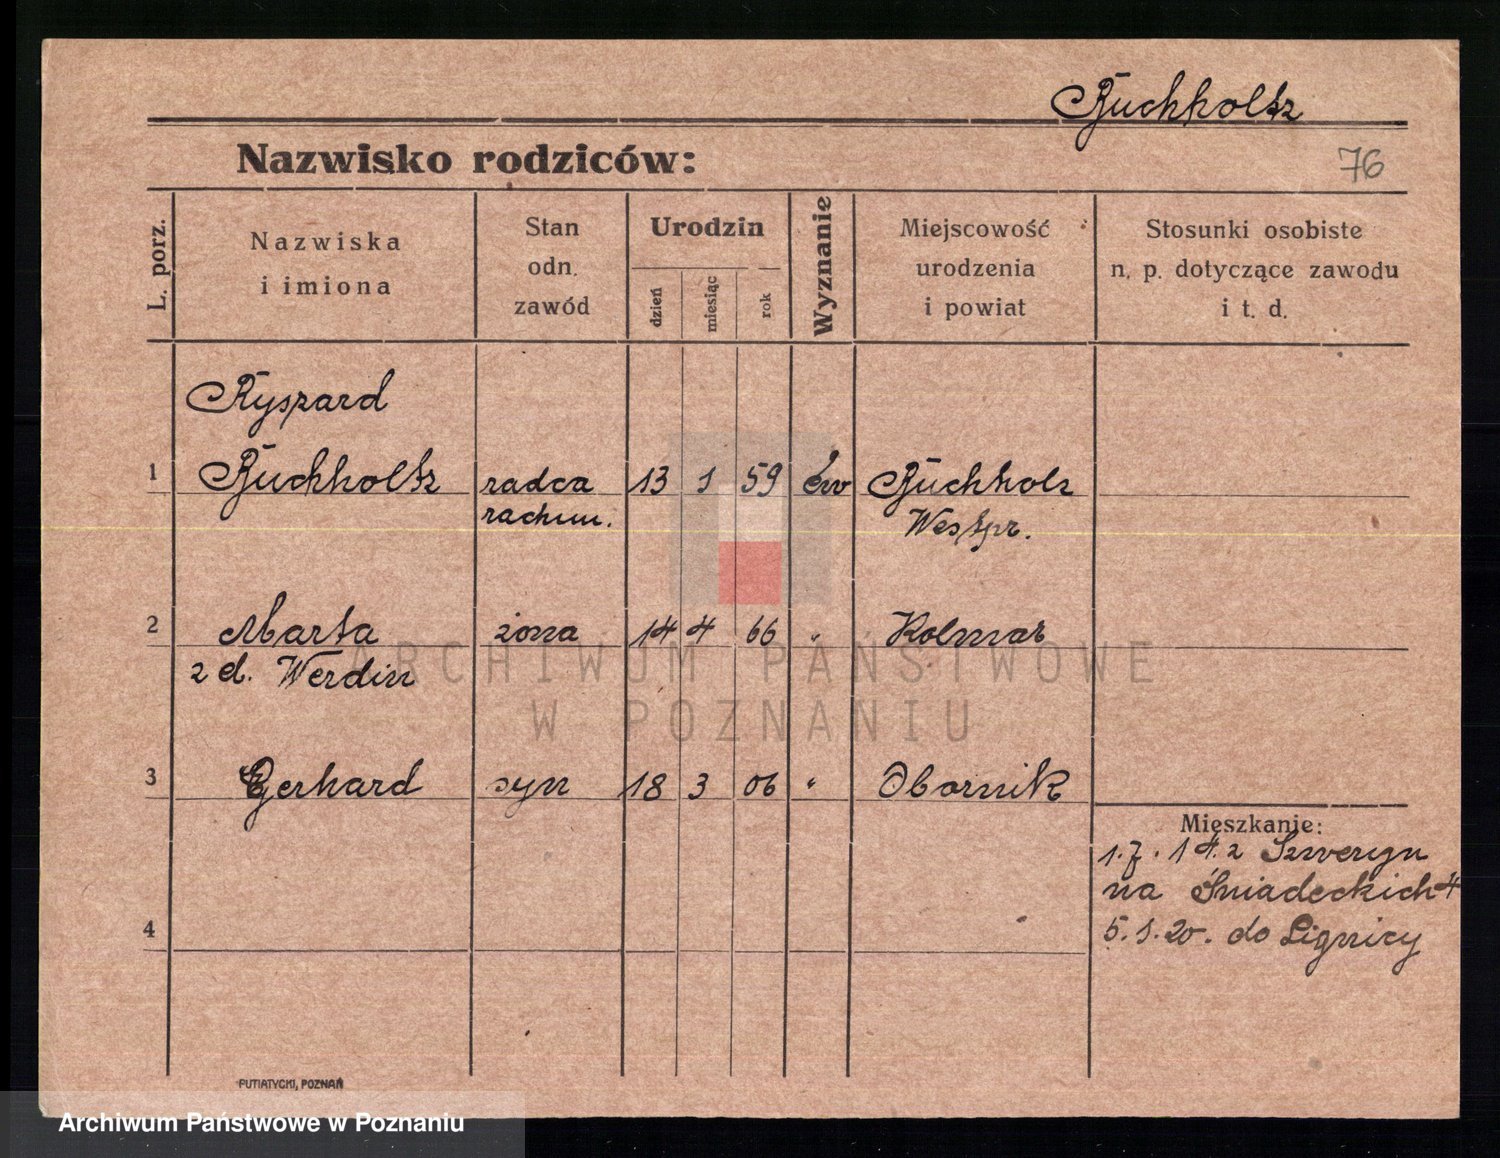 Buchholtz
Nazwisko rodziców:
76
L. porz.
Nazwiska
i imiona
Stan
odn.
zawód
Urodzin
dzień
miesiąc
rok
Wyznanie
Miejscowość
urodzenia
i powiat
Stosunki osobiste
n. p. dotyczące zawodu
i t. d.
Ryszard
1 Buchholtz radca 13 1 59 ew Buchholz
rachun. Westpr.
2 Marta żona 14 4 66 " Kolmar
z d. Werdin
3 Gerhard syn 18 3 06 " Obornik
Mieszkanie:
1.7.14. z Szweryn
na Śniadeckich 4
4
5.1.20. do Lignicy
PUTIATYCKI, POZNAŃ
ARCHIWUM PAŃSTWOWE
W POZNANIU
Archiwum Państwowe w Poznaniu